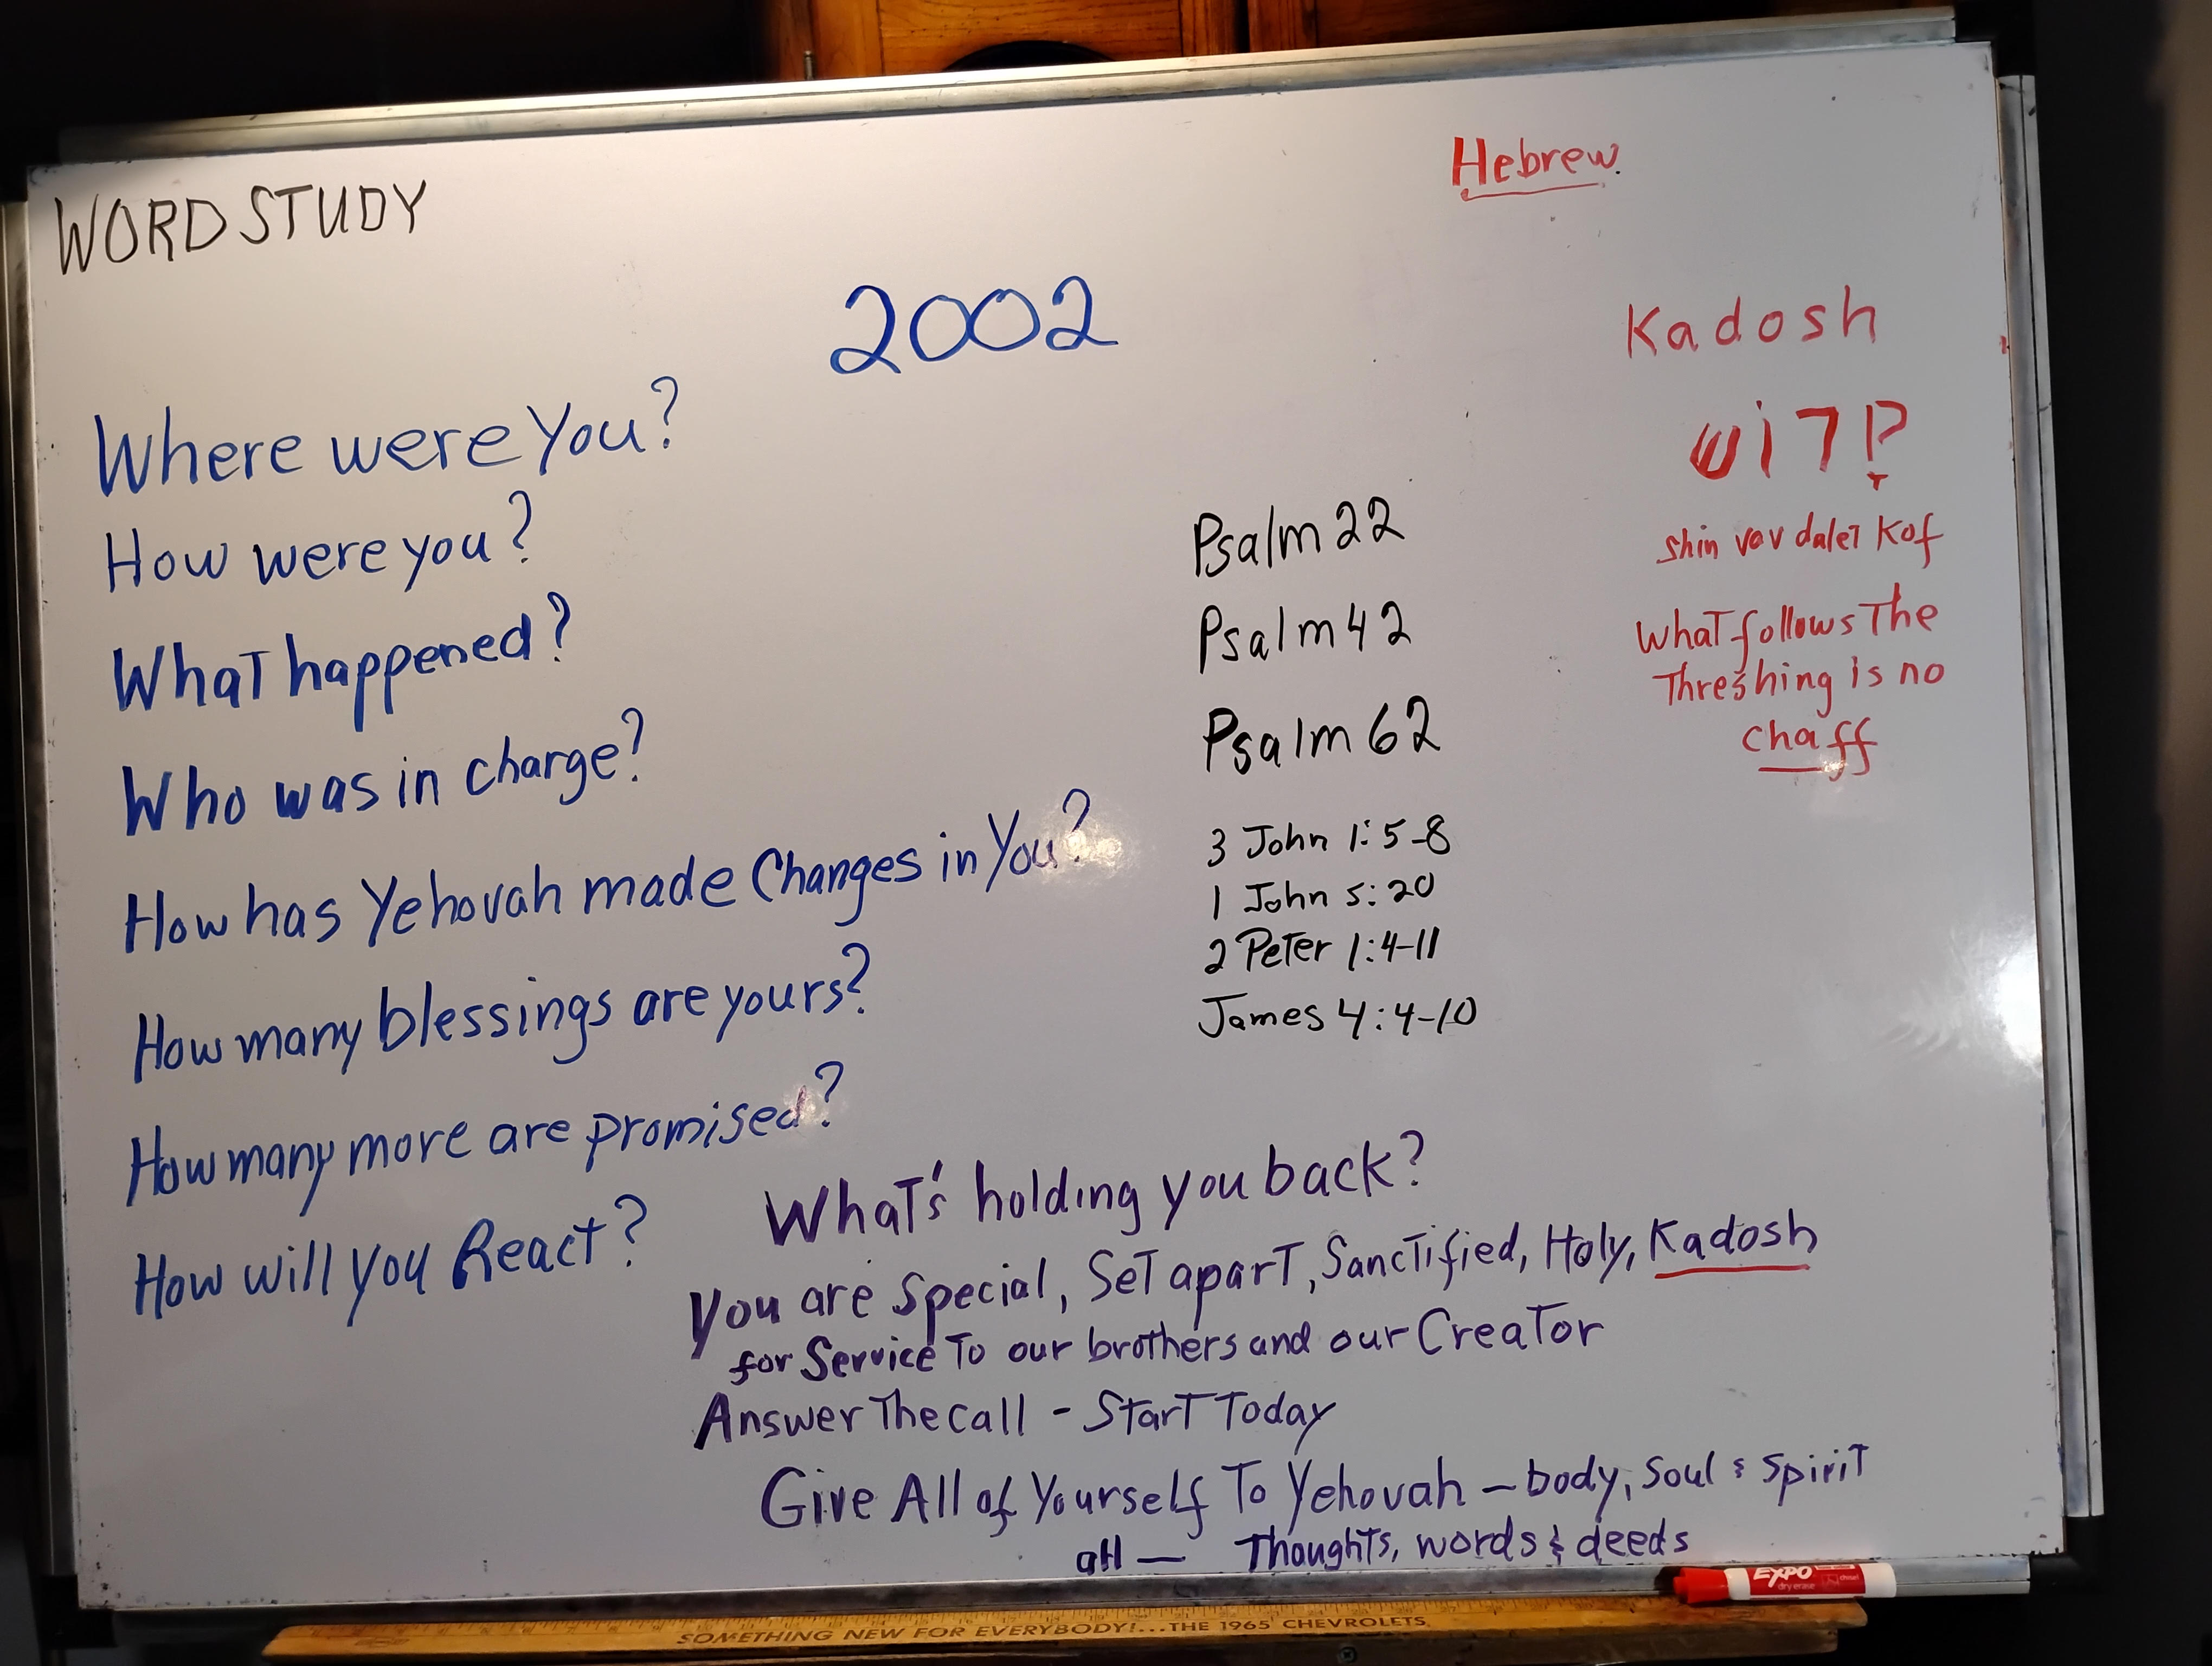 WORD STUDY
Hebrew
2002
Kadosh
קָדוֹשׁ
shin vav dalet Kof
What follows The
Threshing is no
chaff
Where were You?
How were you?
What happened?
Who was in charge?
How has Yehovah made Changes in You?
How many blessings are yours?
How many more are promised?
How will you React?
Psalm 22
Psalm 42
Psalm 62
3 John 1:5-8
1 John 5:20
2 Peter 1:4-11
James 4:4-10
What's holding you back?
You are Special, Set apart, Sanctified, Holy, Kadosh
for Service To our brothers and our Creator
Answer The call - Start Today
Give All of Yourself To Yehovah - body, Soul & Spirit
all — Thoughts, words & deeds
EXPO
dry erase
chisel
SOMETHING NEW FOR EVERYBODY!...THE 1965 CHEVROLETS